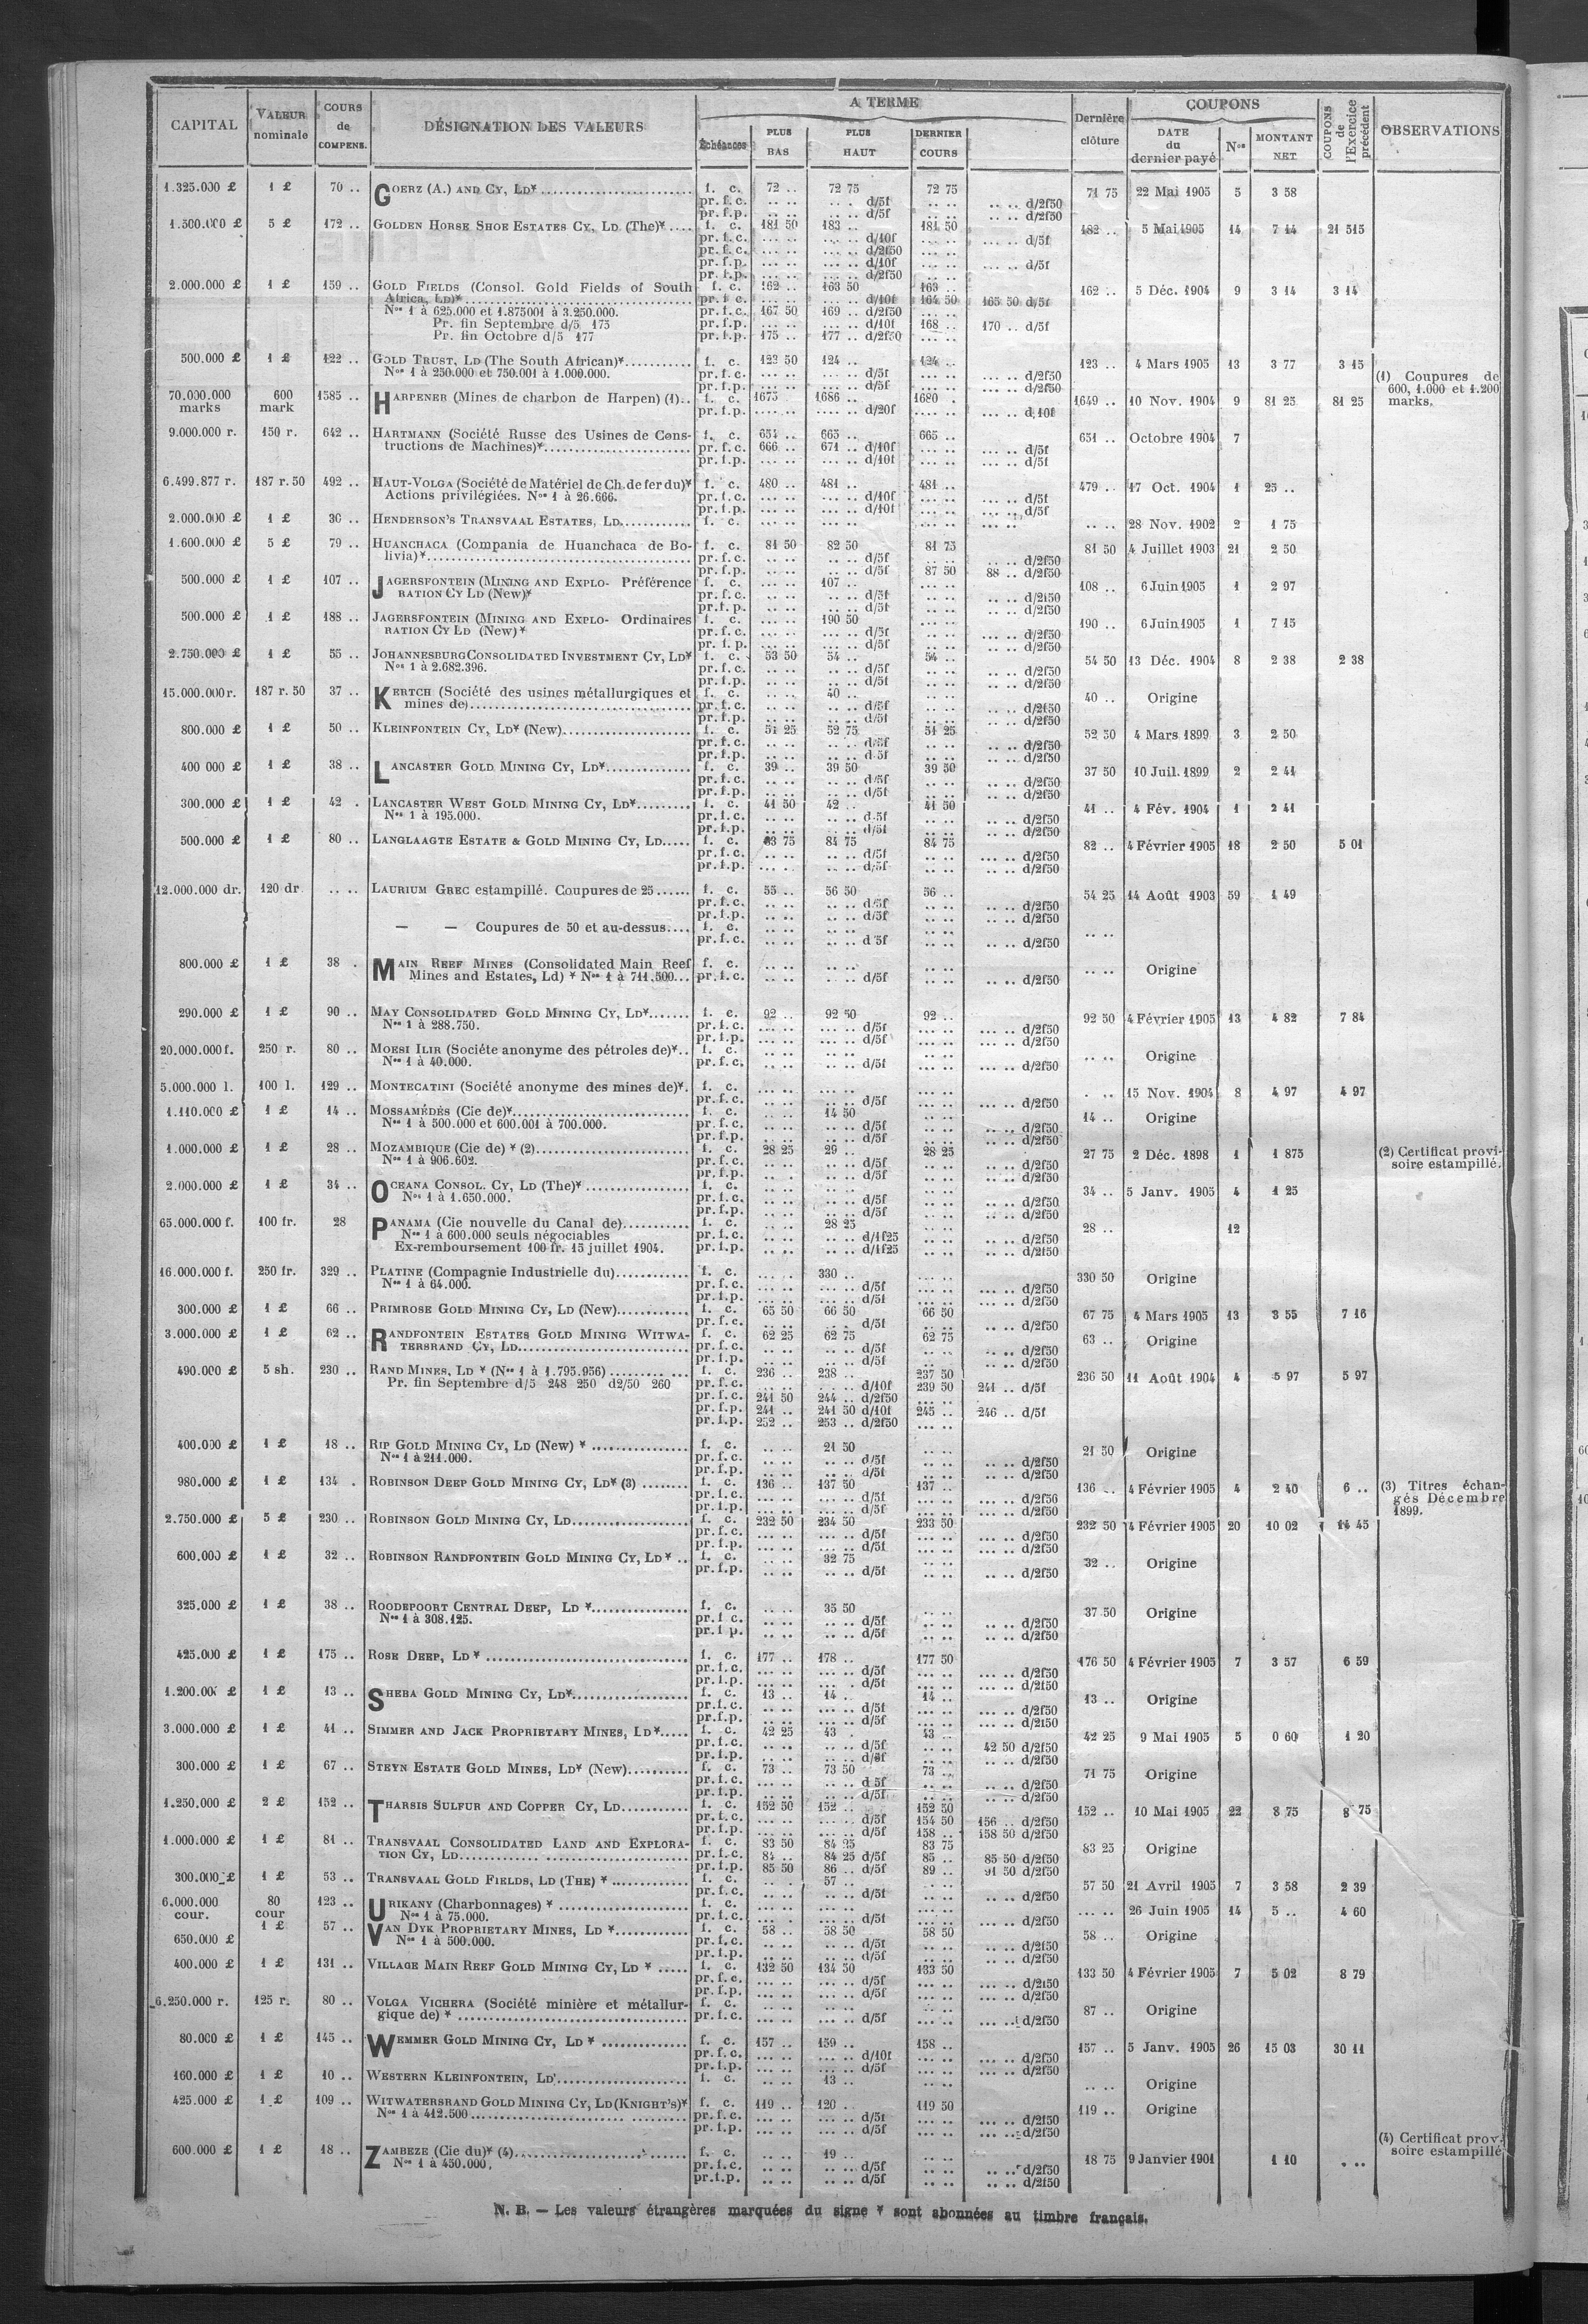 CAPITAL | VALEUR nominale | COURS de COMPENS. | DÉSIGNATION DES VALEURS | A TERME | Dernière clôture | COUPONS | COUPONS de l'Exercice précédent | OBSERVATIONS
Échéances | PLUS BAS | PLUS HAUT | DERNIER COURS | DATE du dernier payé | Nos | MONTANT NET
1.325.000 £ 1 £ 70 .. GOERZ (A.) AND CY, LD* f. c. 72 .. 72 75 72 75 71 75 22 Mai 1905 5 3 58
pr. f. c. .. .. .. .. d/5f .. .. .. .. d/2f50
pr. f. p. .. .. .. .. d/5f .. .. .. .. d/2f50
1.500.000 £ 5 £ 172 .. GOLDEN HORSE SHOE ESTATES CY, LD (The)* f. c. 181 50 183 .. 181 50 182 .. 5 Mai 1905 14 7 14 21 515
pr. f. c. d/10f d/5f
pr. f. c. d/2f50
pr. f. p. d/10f d/5f
pr. f. p. d/2f50
2.000.000 £ 1 £ 159 .. GOLD FIELDS (Consol. Gold Fields of South f. c. 162 .. 163 50 163 .. 162 .. 5 Déc. 1904 9 3 14 3 14
Africa, LD)* pr. f. c. d/10f 164 50 165 50 d/5f
Nos 1 à 625.000 et 1.875001 à 3.250.000. pr. f. c. 167 50 169 .. d/2f50
Pr. fin Septembre d/5 175 pr. f. p. d/10f 168 .. 170 .. d/5f
Pr. fin Octobre d/5 177 pr. f. p. 175 .. 177 .. d/2f50
500.000 £ 1 £ 122 .. GOLD TRUST, LD (The South African)* f. c. 123 50 124 .. 124 .. 123 .. 4 Mars 1905 13 3 77 3 15
Nos 1 à 250.000 et 750.001 à 1.000.000. pr. f. c. d/5f d/2f50
pr. f. p. d/5f d/2f50
(1) Coupures de 600, 1.000 et 1.200 marks.
70.000.000 marks 600 mark 1585 .. HARPENER (Mines de charbon de Harpen) (1).. f. c. 1675 1686 .. 1680 . 1649 .. 10 Nov. 1904 9 81 25 81 25
pr. f. p. d/20f d/10f
9.000.000 r. 150 r. 642 .. HARTMANN (Société Russe des Usines de Cons- f. c. 654 .. 665 .. 665 .. 651 .. Octobre 1904 7
tructions de Machines)* pr. f. c. 666 .. 671 .. d/10f d/5f
pr. f. p. d/10f d/5f
6.499.877 r. 187 r. 50 492 .. HAUT-VOLGA (Société de Matériel de Ch. de fer du)* f. c. 480 .. 481 .. 481 .. 479 .. 17 Oct. 1904 1 25 ..
Actions privilégiées. Nos 1 à 26.666. pr. f. c. d/10f d/5f
pr. f. p. d/10f d/5f
2.000.000 £ 1 £ 30 .. HENDERSON'S TRANSVAAL ESTATES, LD f. c. 28 Nov. 1902 2 1 75
1.600.000 £ 5 £ 79 .. HUANCHACA (Compania de Huanchaca de Bo- f. c. 81 50 82 50 81 75 81 50 4 Juillet 1903 21 2 50
livia)* pr. f. c. d/5f d/2f50
pr. f. p. d/5f 87 50 88 .. d/2f50
500.000 £ 1 £ 107 .. JAGERSFONTEIN (MINING AND EXPLO- Préférence f. c. 107 .. 108 .. 6 Juin 1905 1 2 97
RATION CY LD (New)* pr. f. c. d/5f d/2f50
pr. f. p. d/5f d/2f50
500.000 £ 1 £ 188 .. JAGERSFONTEIN (MINING AND EXPLO- Ordinaires f. c. 190 50 190 .. 6 Juin 1905 1 7 15
RATION CY LD (New)* pr. f. c. d/5f d/2f50
pr. f. p. d/5f d/2f50
2.750.000 £ 1 £ 55 .. JOHANNESBURG CONSOLIDATED INVESTMENT CY, LD* f. c. 53 50 54 .. 54 .. 54 50 13 Déc. 1904 8 2 38 2 38
Nos 1 à 2.682.396. pr. f. c. d/5f d/2f50
pr. f. p. d/5f d/2f50
15.000.000 r. 187 r. 50 37 .. KERTCH (Société des usines métallurgiques et f. c. 40 .. 40 .. Origine
mines de) pr. f. c. d/5f d/2f50
pr. f. p. d/5f d/2f50
800.000 £ 1 £ 50 .. KLEINFONTEIN CY, LD* (New) f. c. 51 25 52 75 51 25 52 50 4 Mars 1899 3 2 50
pr. f. c. d/5f d/2f50
pr. f. p. d/5f d/2f50
400.000 £ 1 £ 38 .. LANCASTER GOLD MINING CY, LD* f. c. 39 .. 39 50 39 50 37 50 10 Juil. 1899 2 2 41
pr. f. c. d/5f d/2f50
pr. f. p. d/5f d/2f50
300.000 £ 1 £ 42 . LANCASTER WEST GOLD MINING CY, LD* f. c. 41 50 42 .. 41 50 41 .. 4 Fév. 1904 1 2 41
Nos 1 à 195.000. pr. f. c. d/5f d/2f50
pr. f. p. d/5f d/2f50
500.000 £ 1 £ 80 .. LANGLAAGTE ESTATE & GOLD MINING CY, LD f. c. 83 75 84 75 84 75 82 .. 4 Février 1905 18 2 50 5 01
pr. f. c. d/5f d/2f50
pr. f. p. d/5f d/2f50
12.000.000 dr. 120 dr. .. .. LAURIUM GREC estampillé. Coupures de 25 f. c. 55 .. 56 50 56 .. 54 25 14 Août 1903 59 1 49
pr. f. c. d/5f d/2f50
pr. f. p. d/5f d/2f50
— — Coupures de 50 et au-dessus f. c.
pr. f. c. d/5f d/2f50
800.000 £ 1 £ 38 . MAIN REEF MINES (Consolidated Main Reef f. c. Origine
Mines and Estates, Ld) * Nos 1 à 711.500 pr. f. c. d/5f d/2f50
290.000 £ 1 £ 90 .. MAY CONSOLIDATED GOLD MINING CY, LD* f. c. 92 .. 92 50 92 .. 92 50 4 Février 1905 13 4 82 7 84
Nos 1 à 288.750. pr. f. c. d/5f d/2f50
pr. f. p. d/5f d/2f50
20.000.000 f. 250 r. 80 .. MOESI ILIR (Sociéte anonyme des pétroles de)* f. c. Origine
Nos 1 à 40.000. pr. f. c. d/5f d/2f50
5.000.000 l. 100 l. 129 .. MONTECATINI (Société anonyme des mines de)*. f. c. 15 Nov. 1904 8 4 97 4 97
pr. f. c. d/5f d/2f50
1.110.000 £ 1 £ 14 .. MOSSAMÉDÈS (Cie de)* f. c. 14 50 14 .. Origine
Nos 1 à 500.000 et 600.001 à 700.000. pr. f. c. d/5f d/2f50
pr. f. p. d/5f d/2f50
1.000.000 £ 1 £ 28 .. MOZAMBIQUE (Cie de) * (2) f. c. 28 25 29 .. 28 25 27 75 2 Déc. 1898 1 1 875 (2) Certificat provi-
Nos 1 à 906.602. pr. f. c. d/5f d/2f50 soire estampillé.
pr. f. p. d/5f d/2f50
2.000.000 £ 1 £ 34 .. OCEANA CONSOL. CY, LD (The)* f. c. 34 .. 5 Janv. 1905 4 1 25
Nos 1 à 1.650.000. pr. f. c. d/5f d/2f50
pr. f. p. d/5f d/2f50
65.000.000 f. 100 fr. 28 PANAMA (Cie nouvelle du Canal de) f. c. 28 25 28 .. 12
Nos 1 à 600.000 seuls négociables pr. f. c. d/1f25 d/2f50
Ex-remboursement 100 fr. 15 juillet 1904. pr. f. p. d/1f25 d/2f50
16.000.000 f. 250 fr. 329 .. PLATINE (Compagnie Industrielle du) f. c. 330 .. 330 50 Origine
Nos 1 à 64.000. pr. f. c. d/5f d/2f50
pr. f. p. d/5f d/2f50
300.000 £ 1 £ 66 .. PRIMROSE GOLD MINING CY, LD (New) f. c. 65 50 66 50 66 50 67 75 4 Mars 1905 13 3 55 7 16
pr. f. c. d/5f d/2f50
3.000.000 £ 1 £ 62 .. RANDFONTEIN ESTATES GOLD MINING WITWA- f. c. 62 25 62 75 62 75 63 .. Origine
TERSRAND CY, LD pr. f. c. d/5f d/2f50
pr. f. p. d/5f d/2f50
490.000 £ 5 sh. 230 .. RAND MINES, LD * (Nos 1 à 1.795.956) f. c. 236 .. 238 .. 237 50 236 50 11 Août 1904 4 5 97 5 97
Pr. fin Septembre d/5 248 250 d2/50 260 pr. f. c. d/10f 239 50 241 .. d/5f
pr. f. c. 241 50 244 .. d/2f50
pr. f. p. 241 .. 241 50 d/10f 245 .. 246 .. d/5f
pr. f. p. 252 .. 253 .. d/2f50
400.000 £ 1 £ 18 .. RIP GOLD MINING CY, LD (New) * f. c. 21 50 21 50 Origine
Nos 1 à 211.000. pr. f. c. d/5f d/2f50
pr. f. p. d/5f d/2f50
980.000 £ 1 £ 134 . ROBINSON DEEP GOLD MINING CY, LD* (3) f. c. 136 .. 137 50 137 .. 136 .. 4 Février 1905 4 2 40 6 .. (3) Titres échan-
pr. f. c. d/5f d/2f50 gés Décembre
pr. f. p. d/5f d/2f50 1899.
2.750.000 £ 5 £ 230 .. ROBINSON GOLD MINING CY, LD f. c. 232 50 234 50 233 50 232 50 4 Février 1905 20 10 02 14 45
pr. f. c. d/5f d/2f50
pr. f. p. d/5f d/2f50
600.000 £ 1 £ 32 .. ROBINSON RANDFONTEIN GOLD MINING CY, LD * f. c. 32 75 32 .. Origine
pr. f. p. d/5f d/2f50
325.000 £ 1 £ 38 .. ROODEPOORT CENTRAL DEEP, LD * f. c. 35 50 37 50 Origine
Nos 1 à 308.125. pr. f. c. d/5f d/2f50
pr. f. p. d/5f d/2f50
425.000 £ 1 £ 175 .. ROSE DEEP, LD * f. c. 177 .. 178 .. 177 50 176 50 4 Février 1905 7 3 57 6 59
pr. f. c. d/5f d/2f50
pr. f. p. d/5f d/2f50
1.200.00 £ 1 £ 13 .. SHEBA GOLD MINING CY, LD* f. c. 13 .. 14 .. 14 .. 13 .. Origine
pr. f. c. d/5f d/2f50
pr. f. p. d/5f d/2f50
3.000.000 £ 1 £ 41 .. SIMMER AND JACK PROPRIETARY MINES, LD* f. c. 42 25 43 . 43 .. 42 25 9 Mai 1905 5 0 60 1 20
pr. f. c. d/5f 42 50 d/2f50
pr. f. p. d/5f d/2f50
300.000 £ 1 £ 67 .. STEYN ESTATE GOLD MINES, LD* (New) f. c. 73 .. 73 50 73 .. 71 75 Origine
pr. f. c. d/5f d/2f50
pr. f. p. d/5f d/2f50
1.250.000 £ 2 £ 152 .. THARSIS SULFUR AND COPPER CY, LD f. c. 152 50 152 .. 152 50 152 .. 10 Mai 1905 22 8 75 8 75
pr. f. c. d/5f 154 50 156 .. d/2f50
pr. f. p. d/5f 158 .. 158 50 d/2f50
1.000.000 £ 1 £ 81 .. TRANSVAAL CONSOLIDATED LAND AND EXPLORA- f. c. 83 50 84 25 83 75 83 25 Origine
TION CY, LD pr. f. c. 84 .. 84 25 d/5f 85 .. 85 50 d/2f50
pr. f. p. 85 50 86 .. d/5f 89 .. 91 50 d/2f50
300.000 £ 1 £ 53 .. TRANSVAAL GOLD FIELDS, LD (THE) * f. c. 57 .. 57 50 21 Avril 1905 7 3 58 2 39
pr. f. c. d/5f d/2f50
6.000.000 cour. 80 cour 123 .. URIKANY (Charbonnages) * f. c. 26 Juin 1905 14 5 .. 4 60
Nos 1 à 75.000. pr. f. c. d/5f d/2f50
650.000 £ 1 £ 57 .. VAN DYK PROPRIETARY MINES, LD * f. c. 58 .. 58 50 58 50 58 .. Origine
Nos 1 à 500.000. pr. f. c. d/5f d/2f50
pr. f. p. d/5f d/2f50
400.000 £ 1 £ 131 .. VILLAGE MAIN REEF GOLD MINING CY, LD * f. c. 132 50 134 50 133 50 133 50 4 Février 1905 7 5 02 8 79
pr. f. c. d/5f d/2f50
pr. f. p. d/5f d/2f50
6.250.000 r. 125 r. 80 .. VOLGA VICHERA (Société minière et métallur- f. c. 87 .. Origine
gique de) * pr. f. c. d/5f d/2f50
80.000 £ 1 £ 145 .. WEMMER GOLD MINING CY, LD * f. c. 157 .. 159 .. 158 .. 157 .. 5 Janv. 1905 26 15 03 30 11
pr. f. c. d/10f d/2f50
pr. f. p. d/5f d/2f50
160.000 £ 1 £ 10 .. WESTERN KLEINFONTEIN, LD f. c. 13 .. Origine
425.000 £ 1 £ 109 .. WITWATERSRAND GOLD MINING CY, LD (KNIGHT'S)* f. c. 119 .. 120 .. 119 50 119 .. Origine
Nos 1 à 412.500 pr. f. c. d/5f d/2f50
pr. f. p. d/5f d/2f50
600.000 £ 1 £ 18 .. ZAMBEZE (Cie du)* (4) f. c. 19 .. 18 75 9 Janvier 1901 1 10 (4) Certificat provi-
Nos 1 à 450.000. pr. f. c. d/5f d/2f50 soire estampillé
pr. f. p. d/5f d/2f50
N. B. — Les valeurs étrangères marquées du signe * sont abonnées au timbre français.